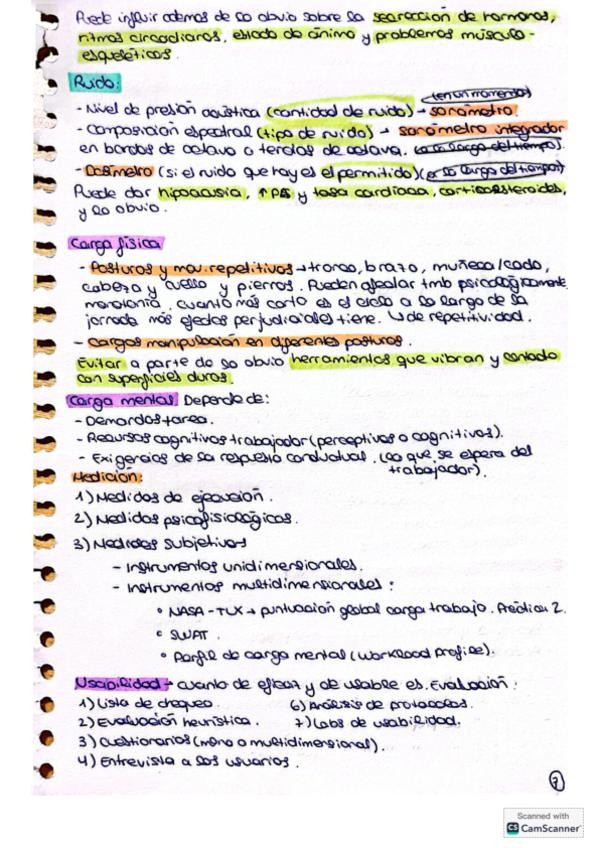 Puede influir además de lo obvio sobre la secrección de hormonas,
ritmos circadianos, estado de ánimo y problemas músculo-
esqueléticos.
Ruido:
(en un momento)
- Nivel de presión acústica (cantidad de ruido) → sonómetro.
- Composición espectral (tipo de ruido) → sonómetro integrador
en bandas de octava o tercios de octava. (a lo largo del tiempo).
- Dosímetro (si el ruido que hay es el permitido) (a lo largo del tiempo)
Puede dar hipoacusia, ↑ PAS y tasa cardíaca, corticoesteroides,
y lo obvio.
Carga física
- Posturas y mov. repetitivos → tronco, brazo, muñeca/codo,
cabeza y cuello y piernas. Pueden afectar tmb psicológicamente
monotonía, cuanto más corto es el ciclo a lo largo de la
jornada más efectos perjudiciales tiene. ↳ de repetitividad.
- Cargas manipulación en diferentes posturas.
Evitar a parte de lo obvio herramientas que vibran y contacto
con superficies duras.
Carga mental. Depende de:
- Demandas tarea.
- Recursos cognitivos trabajador (perceptivos o cognitivos).
- Exigencias de la respuesta conductual. (lo que se espera del
trabajador).
Medición:
1) Medidas de ejecución.
2) Medidas psicofisiológicas.
3) Medidas subjetivas
- Instrumentos unidimensionales.
- Instrumentos multidimensionales:
• NASA-TLX → puntuación global carga trabajo. Práctica 2.
• SWAT.
• Perfil de carga mental (Workload profile).
Usabilidad → cuanto de eficaz y de usable es. Evaluación:
1) Lista de chequeo. 6) Análisis de protocolos.
2) Evaluación heurística. 7) Labs de usabilidad.
3) Cuestionarios (mono o multidimensional).
4) Entrevista a los usuarios.
7
Scanned with
CS CamScanner